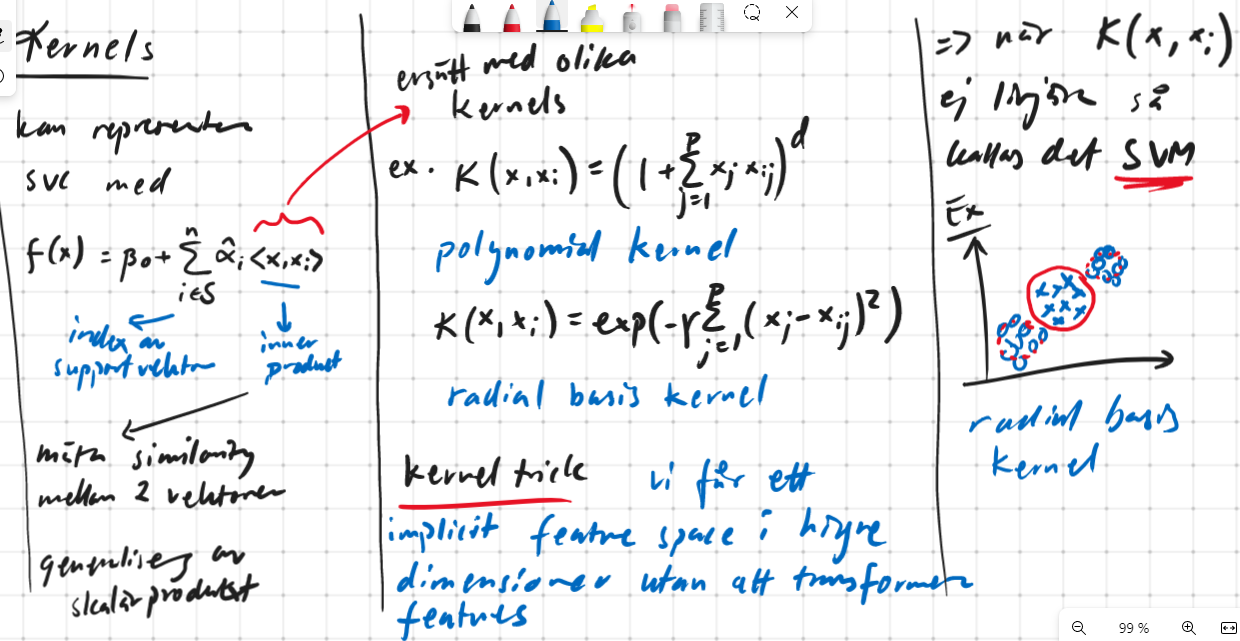 Kernels
kan representera
svc med
f(x) = β₀ + Σ_{i∈S}^{n} α̂ᵢ <x,xᵢ>
index av
supportvektor
inner
product
mäta similarity
mellan 2 vektorer
generalisering av
skalärprodukt
ersätt med olika
kernels
ex. K(x,xᵢ) = (1 + Σ_{j=1}^{p} xⱼ xᵢⱼ)^d
polynomial kernel
K(x,xᵢ) = exp(-γ Σ_{j=1}^{p} (xⱼ - xᵢⱼ)²)
radial basis kernel
kernel trick vi får ett
implicit feature space i högre
dimensioner utan att transformera
features
=> när K(x,xᵢ)
ej linjära så
kallas det SVM
Ex
radial basis
kernel
99 %